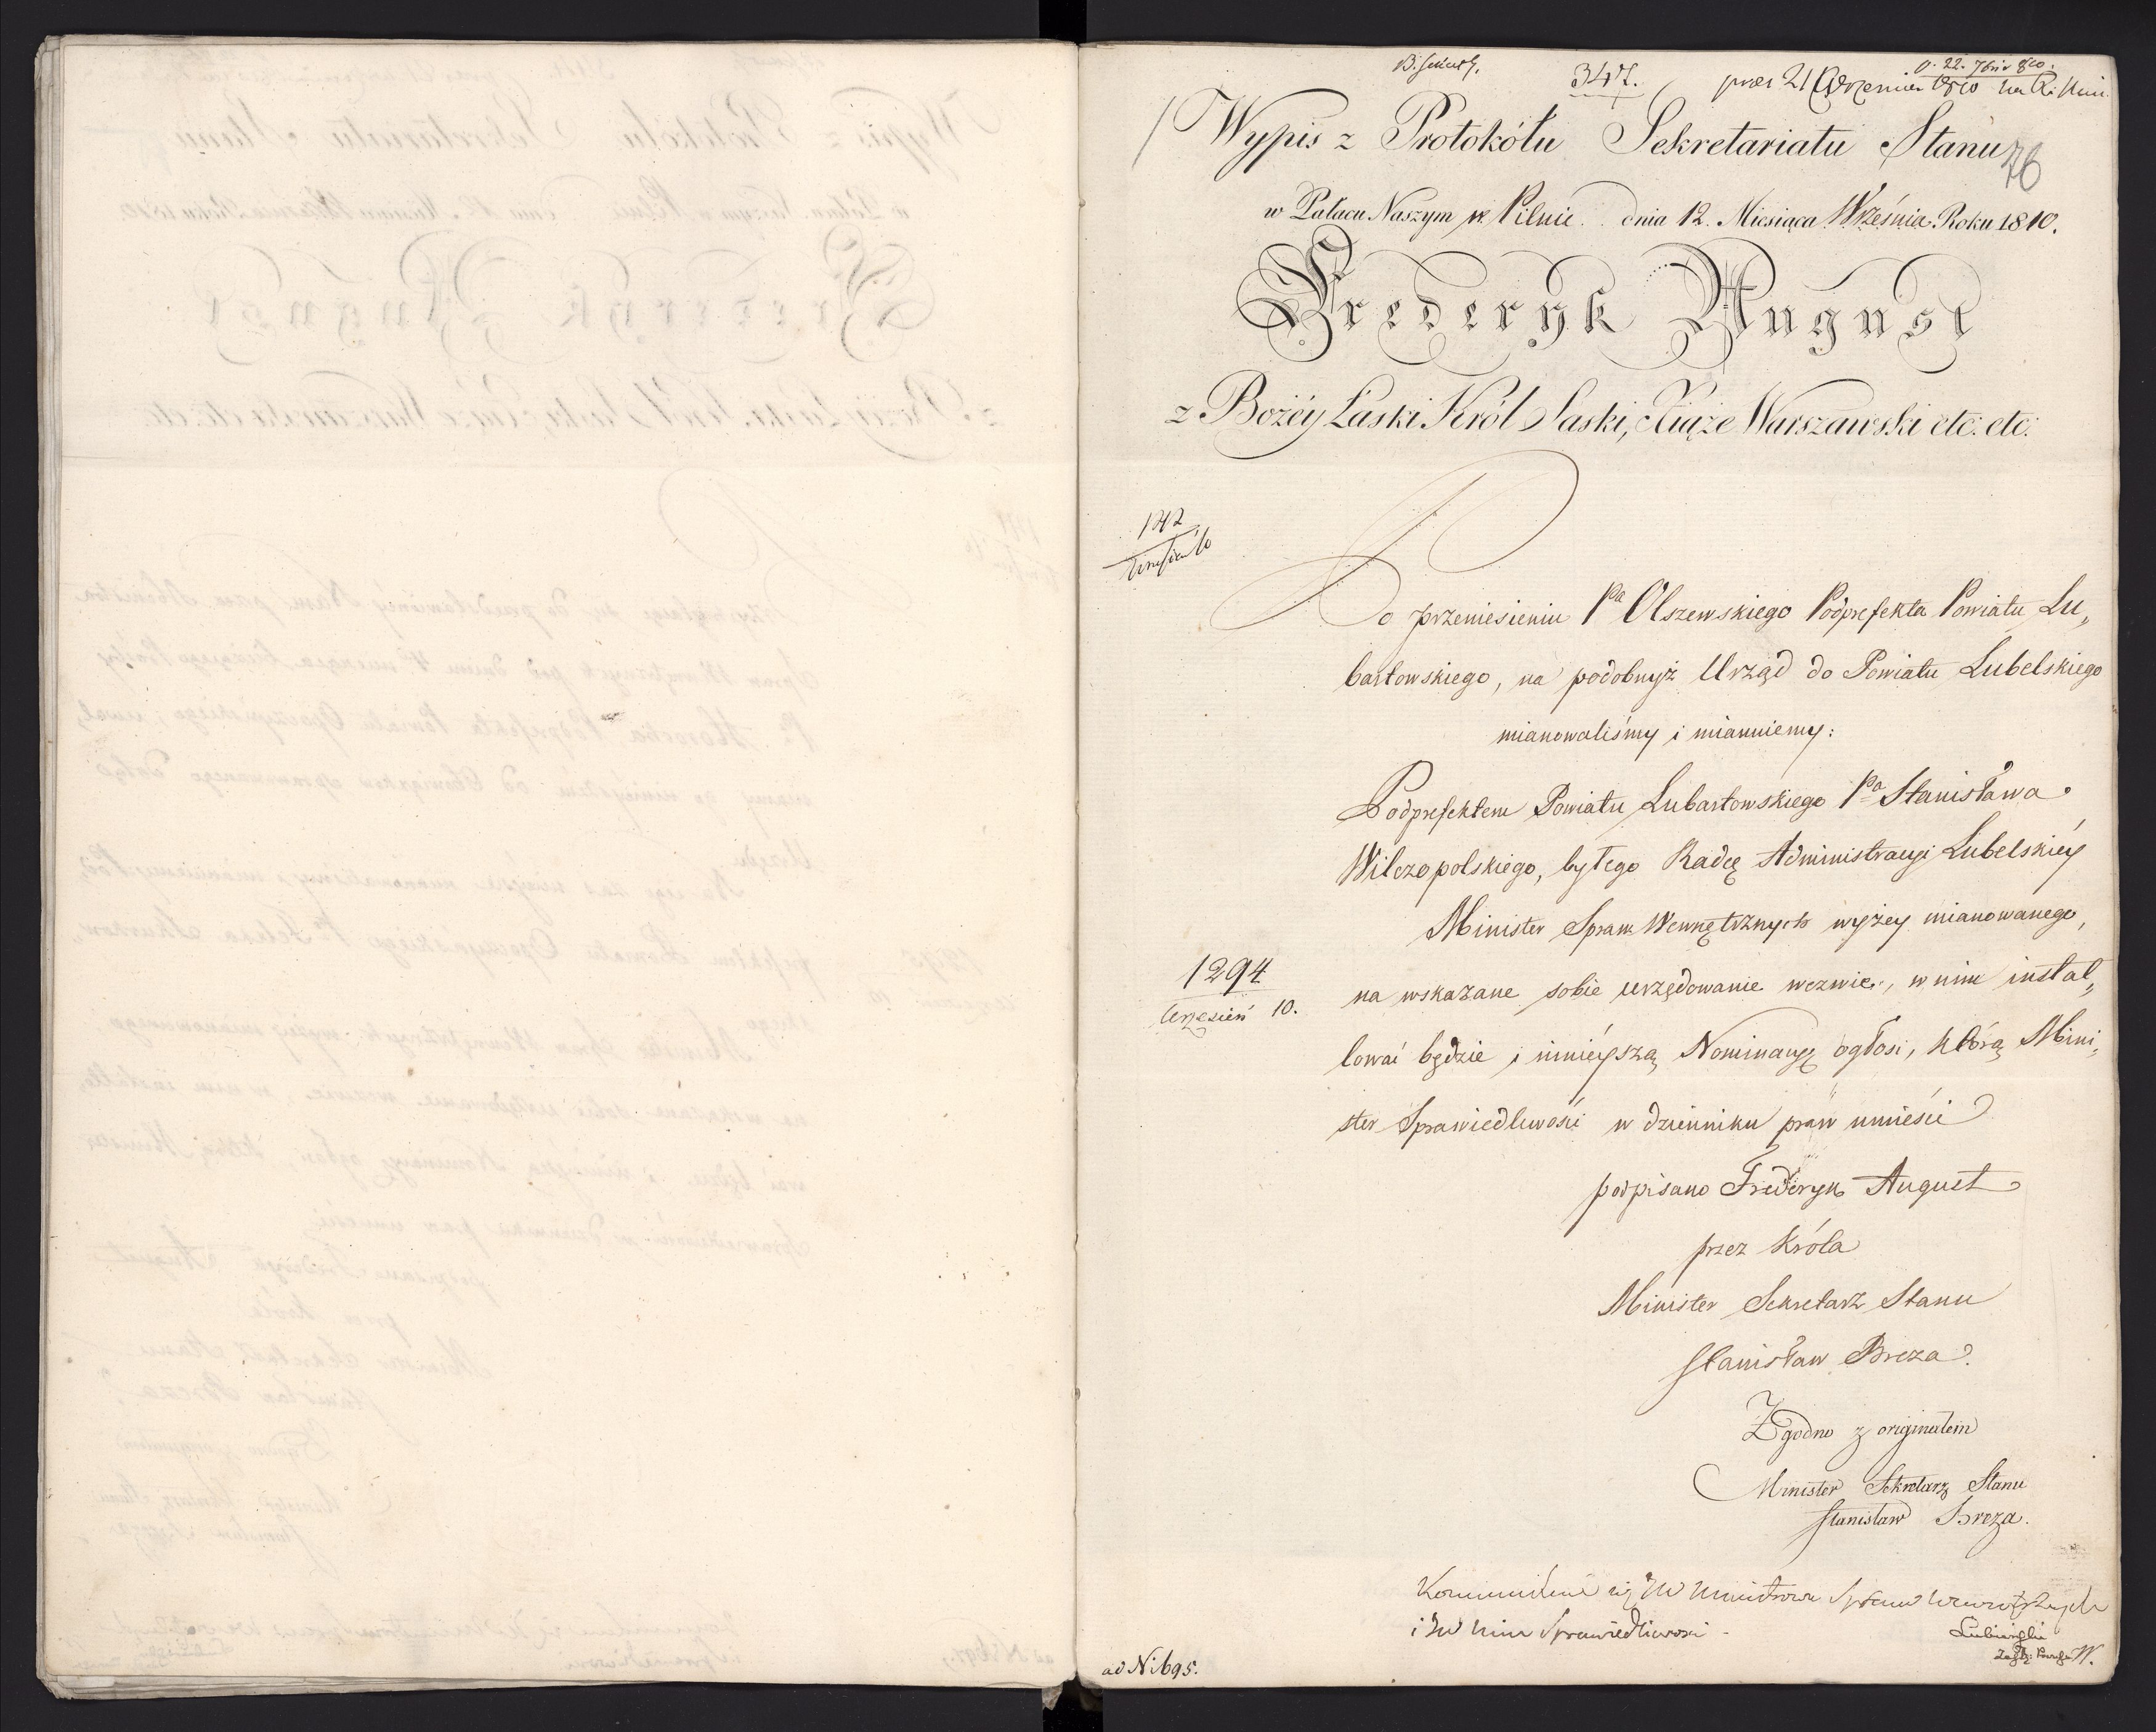 347.
Wypis z Protokółu Sekretariatu Stanu
76
w Pałacu Naszym w Pilnic. dnia 12. Miesiąca Września Roku 1810.
Frederyk August
z Bożéy Łaski Król Saski, Xiąże Warszawski etc. etc.
1242
Po przeniesieniu Pa Olszewskiego Podprefekta Powiatu Lu„
bartowskiego, na podobnyż Urząd do Powiatu Lubelskiego
mianowaliśmy i mianuiemy:
Podprefektem Powiatu Lubartowskiego Pa Stanisława
Wilczopolskiego, byłego Radcę Administracyi Lubelskiéy
Minister Spraw Wewnętrznych wyżey mianowanego,
1294
Wrzesień 10.
na wskazane sobie urzędowanie wezwie, w nim instal„
lować będzie i ninieyszą Nominacyę ogłosi, którą Mini„
ster Sprawiedliwości w dzienniku praw umieści
podpisano Frederyk August
przez Króla
Minister Sekretarz Stanu
Stanisław Breza.
Zgodno z originałem
Minister Sekretarz Stanu
Stanisław Breza.
Ministrowi Spraw Wewnętrznych
i JW Min Sprawiedliwości -
ad N 1695.